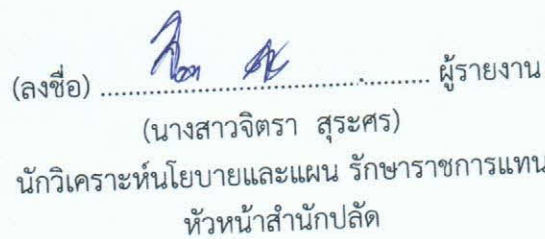 (ลงชื่อ) ........................................ ผู้รายงาน
(นางสาวจิตรา สุระศร)
นักวิเคราะห์นโยบายและแผน รักษาราชการแทน
หัวหน้าสำนักปลัด